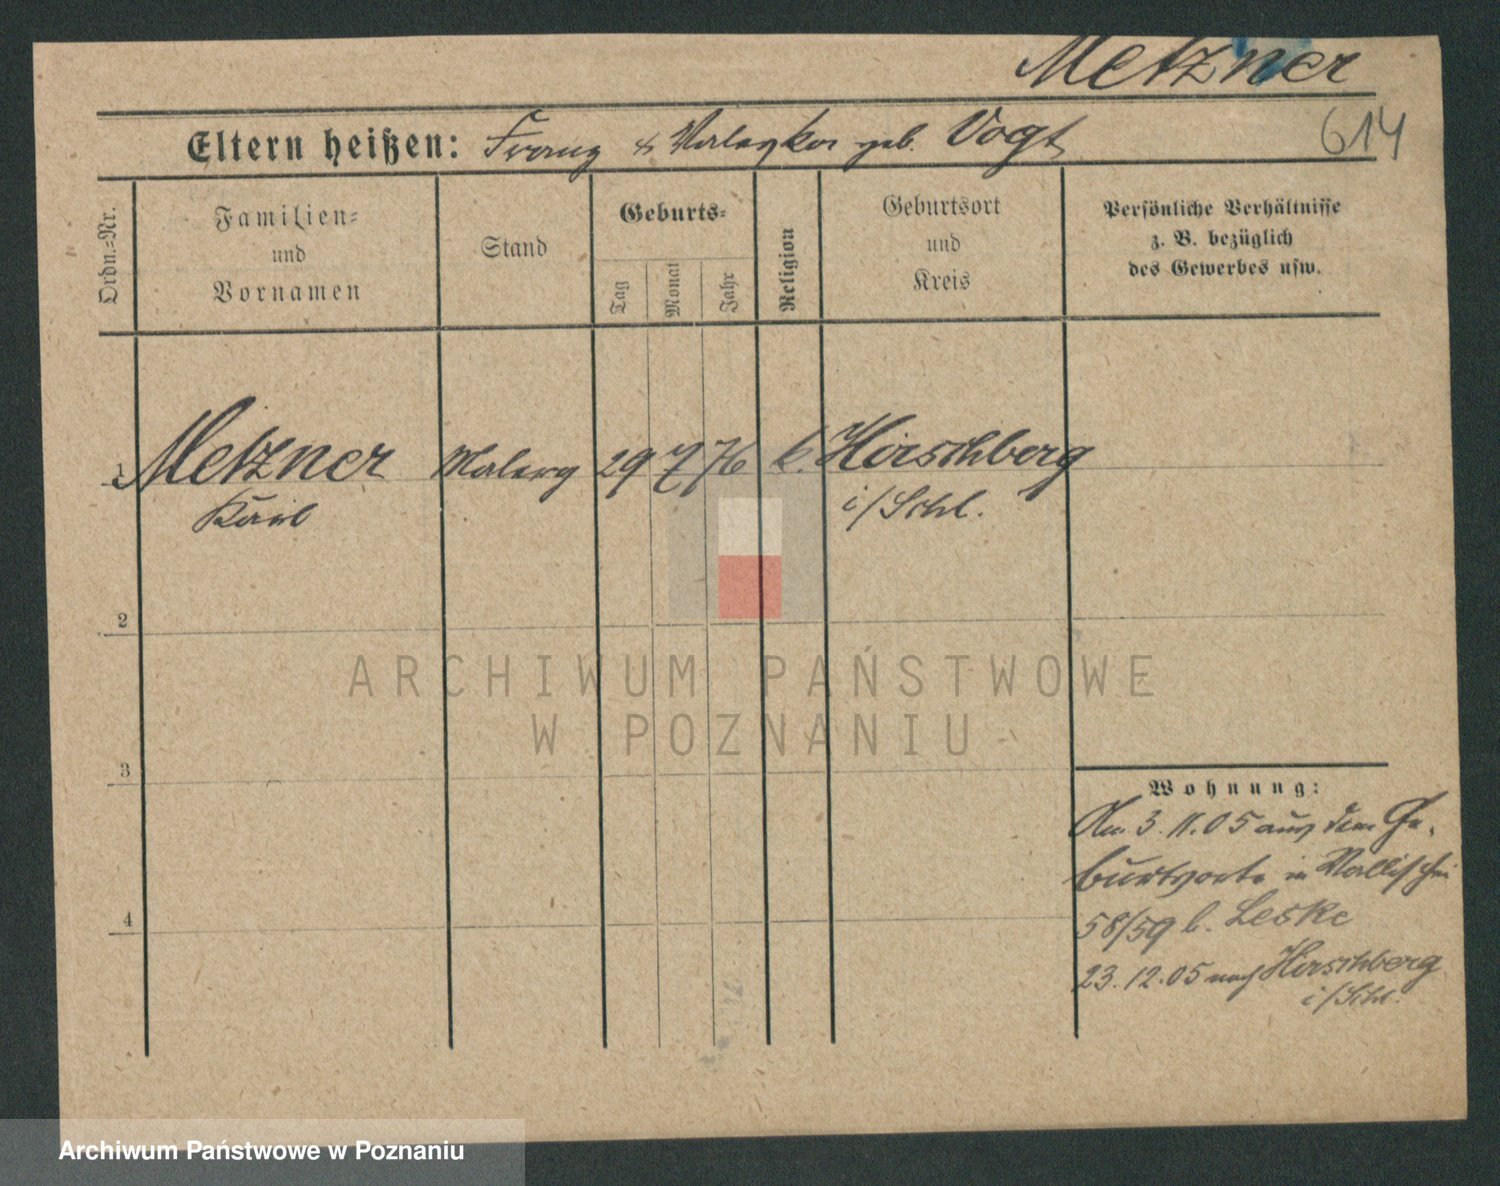 Metzner
614
Eltern heißen: Franz & geb. Vogt
Ordn.=Nr.
Familien=
und
Vornamen
Stand
Geburts=
Tag
Monat
Jahr
Religion
Geburtsort
und
Kreis
Persönliche Verhältnisse
z. B. bezüglich
des Gewerbes usw.
1 Metzner 29 7 76 k. Hirschberg
i/Schl.
2
3
4
Wohnung:
Am 3.11.05 aus dem Ge-
burtsorte in Wallischei
58/59 b. Leske
23.12.05 nach Hirschberg
i/Schl.
ARCHIWUM PAŃSTWOWE
W POZNANIU
Archiwum Państwowe w Poznaniu